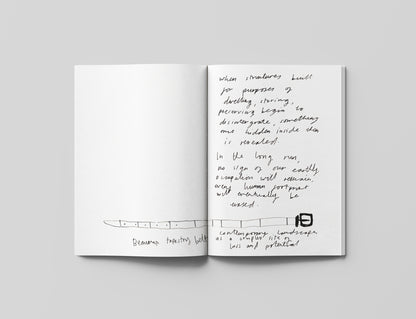 when structures built
for purposes of
dwelling, storing,
preserving begin to
disintergrate, something
once hidden inside them
is revealed
In the long run,
no sign of our earthly
occupation will remain,
every human footprint
will eventually be
erased.
tapestry belt
contemporary landscape
as a complex site of
loss and potential